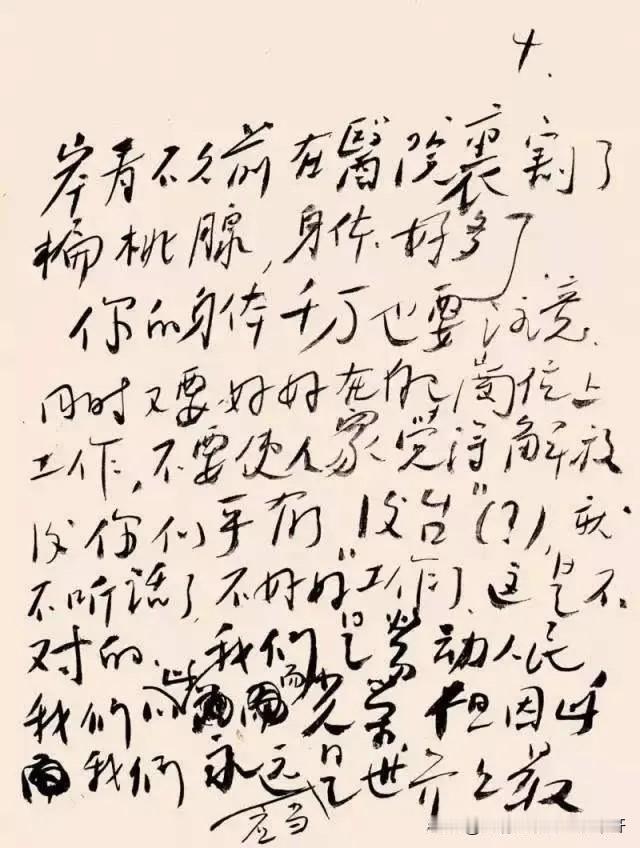 4.
岸青不久前在醫院裏割了
楄桃腺,身体好多了
你的身体千万也要注意.
同时又要好好在自己崗位上
工作,不要使人家觉得解放
後你似乎有"後台"(?),就
不听话了,不好好"工作了.这是不
对的.我们是劳动人民
我们以此而光荣 但因此
而我们永远是世界上最
应当